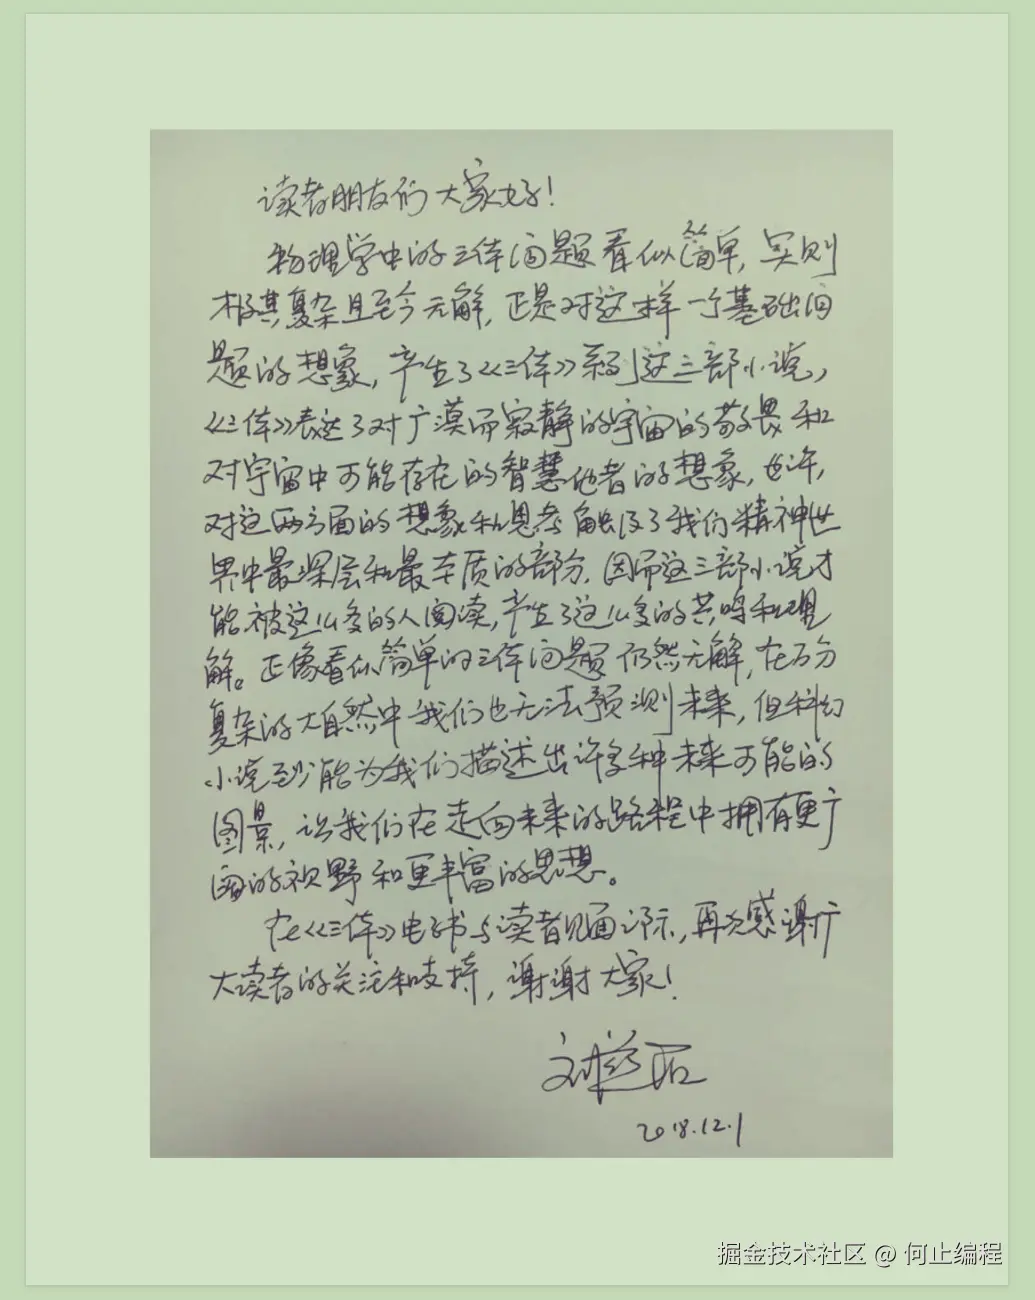 读者朋友们大家好!
物理学中的三体问题看似简单,实则
极其复杂且至今无解,正是对这样一个基础问
题的想象,产生了《三体》系列这三部小说,
《三体》表达了对广漠而寂静的宇宙的敬畏和
对宇宙中可能存在的智慧他者的想象,也许,
对这两方面的想象和思考触及了我们精神世
界中最深层和最本质的部分,因而这三部小说才
能被这么多的人阅读,产生了这么多的共鸣和理
解。正像看似简单的三体问题仍然无解,在万分
复杂的大自然中我们也无法预测未来,但科幻
小说到能为我们描述出许多种未来可能的
图景,让我们在走向未来的路程中拥有更广
阔的视野和更丰富的思想。
在《三体》电子书与读者见面之际,再次感谢广
大读者的关注和支持,谢谢大家!
刘慈欣
2018.12.1
掘金技术社区 @ 何止编程